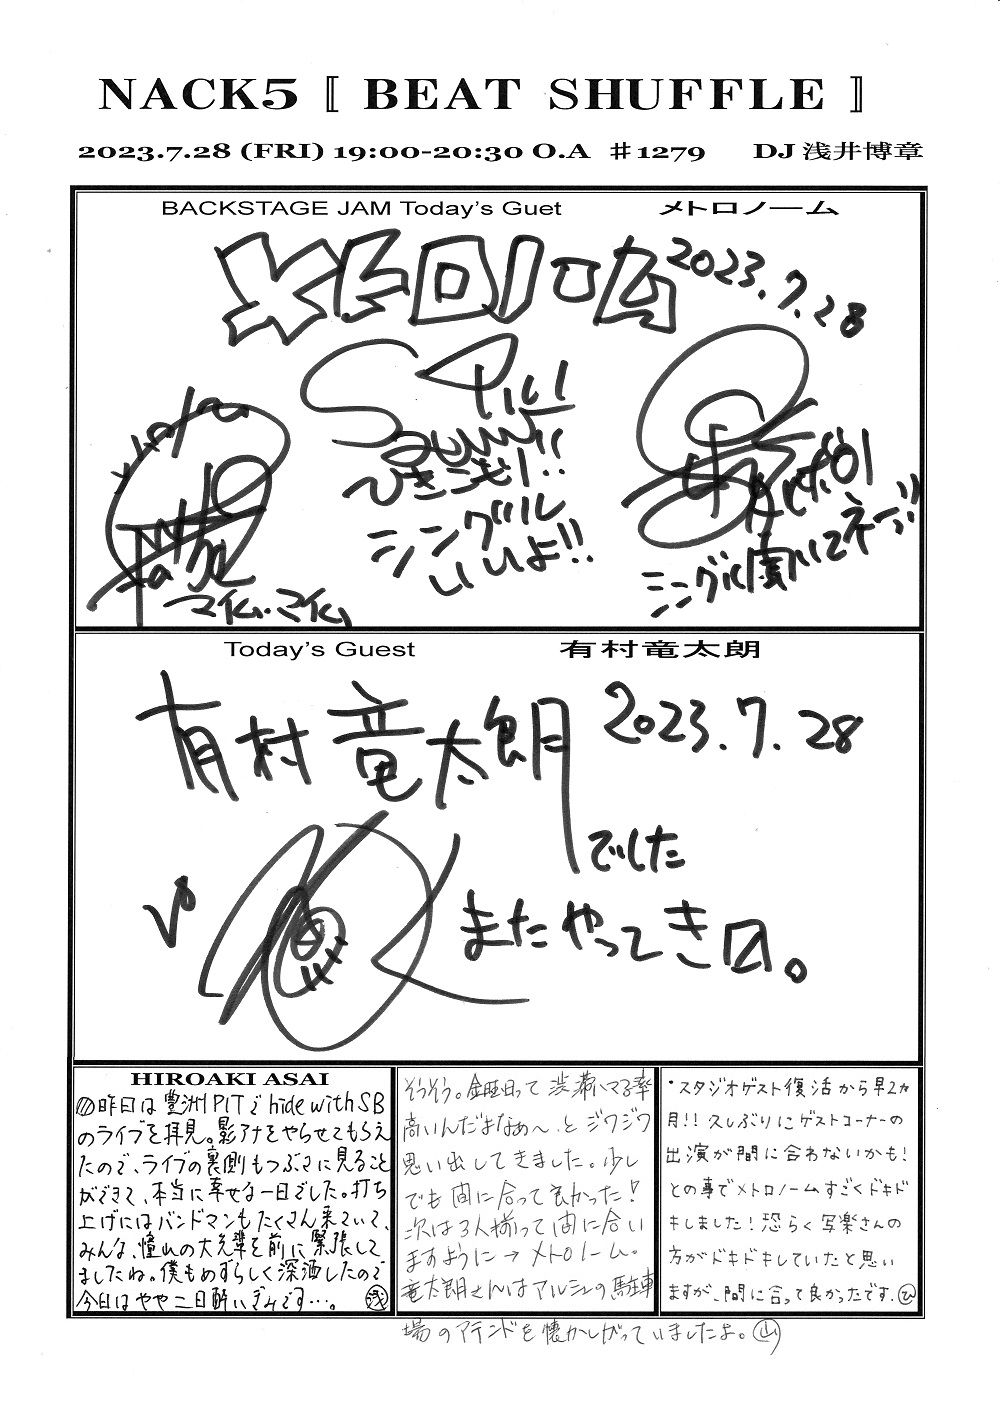 NACK5 〚 BEAT SHUFFLE 〛
2023.7.28 (FRI) 19:00-20:30 O.A ♯1279 DJ 浅井博章
BACKSTAGE JAM Today's Guet メトロノーム
メトロノーム 2023.7.28
シャラク
マイム・マイム
ひきこもり!!
シングル
いいよ!!
シングル
Today's Guest 有村竜太朗
有村竜太朗 2023.7.28
でした
またやってき
HIROAKI ASAI
昨日は豊洲PITでhide with SB
のライブを拝見。影アナをやらせてもらえ
たので、ライブの裏側もつぶさに見ること
ができて、本当に幸せな一日でした。打ち
上げにはバンドマンもたくさん来ていて、
みんな、憧れの大先輩を前に緊張して
ましたね。僕もめずらしく深酒したので
今日はやや二日酔いぎみです…。浅
そうそう。金曜日って渋滞ハマる率
高いんだよなぁ〜、とジワジワ
思い出してきました。少し
でも間に合って良かった!
次は3人揃って間に合い
ますように→メトロノーム。
竜太朗さんはアルシェの駐車
場のアテンドを懐かしがっていましたよ。山
・スタジオゲスト復活から早2ヵ
月!! 久しぶりにゲストコーナーの
出演が間に合わないかも!
との事でメトロノームすごくドキド
キしました!恐らく写楽さんの
方がドキドキしていたと思い
ますが、間に合って良かったです。ひ